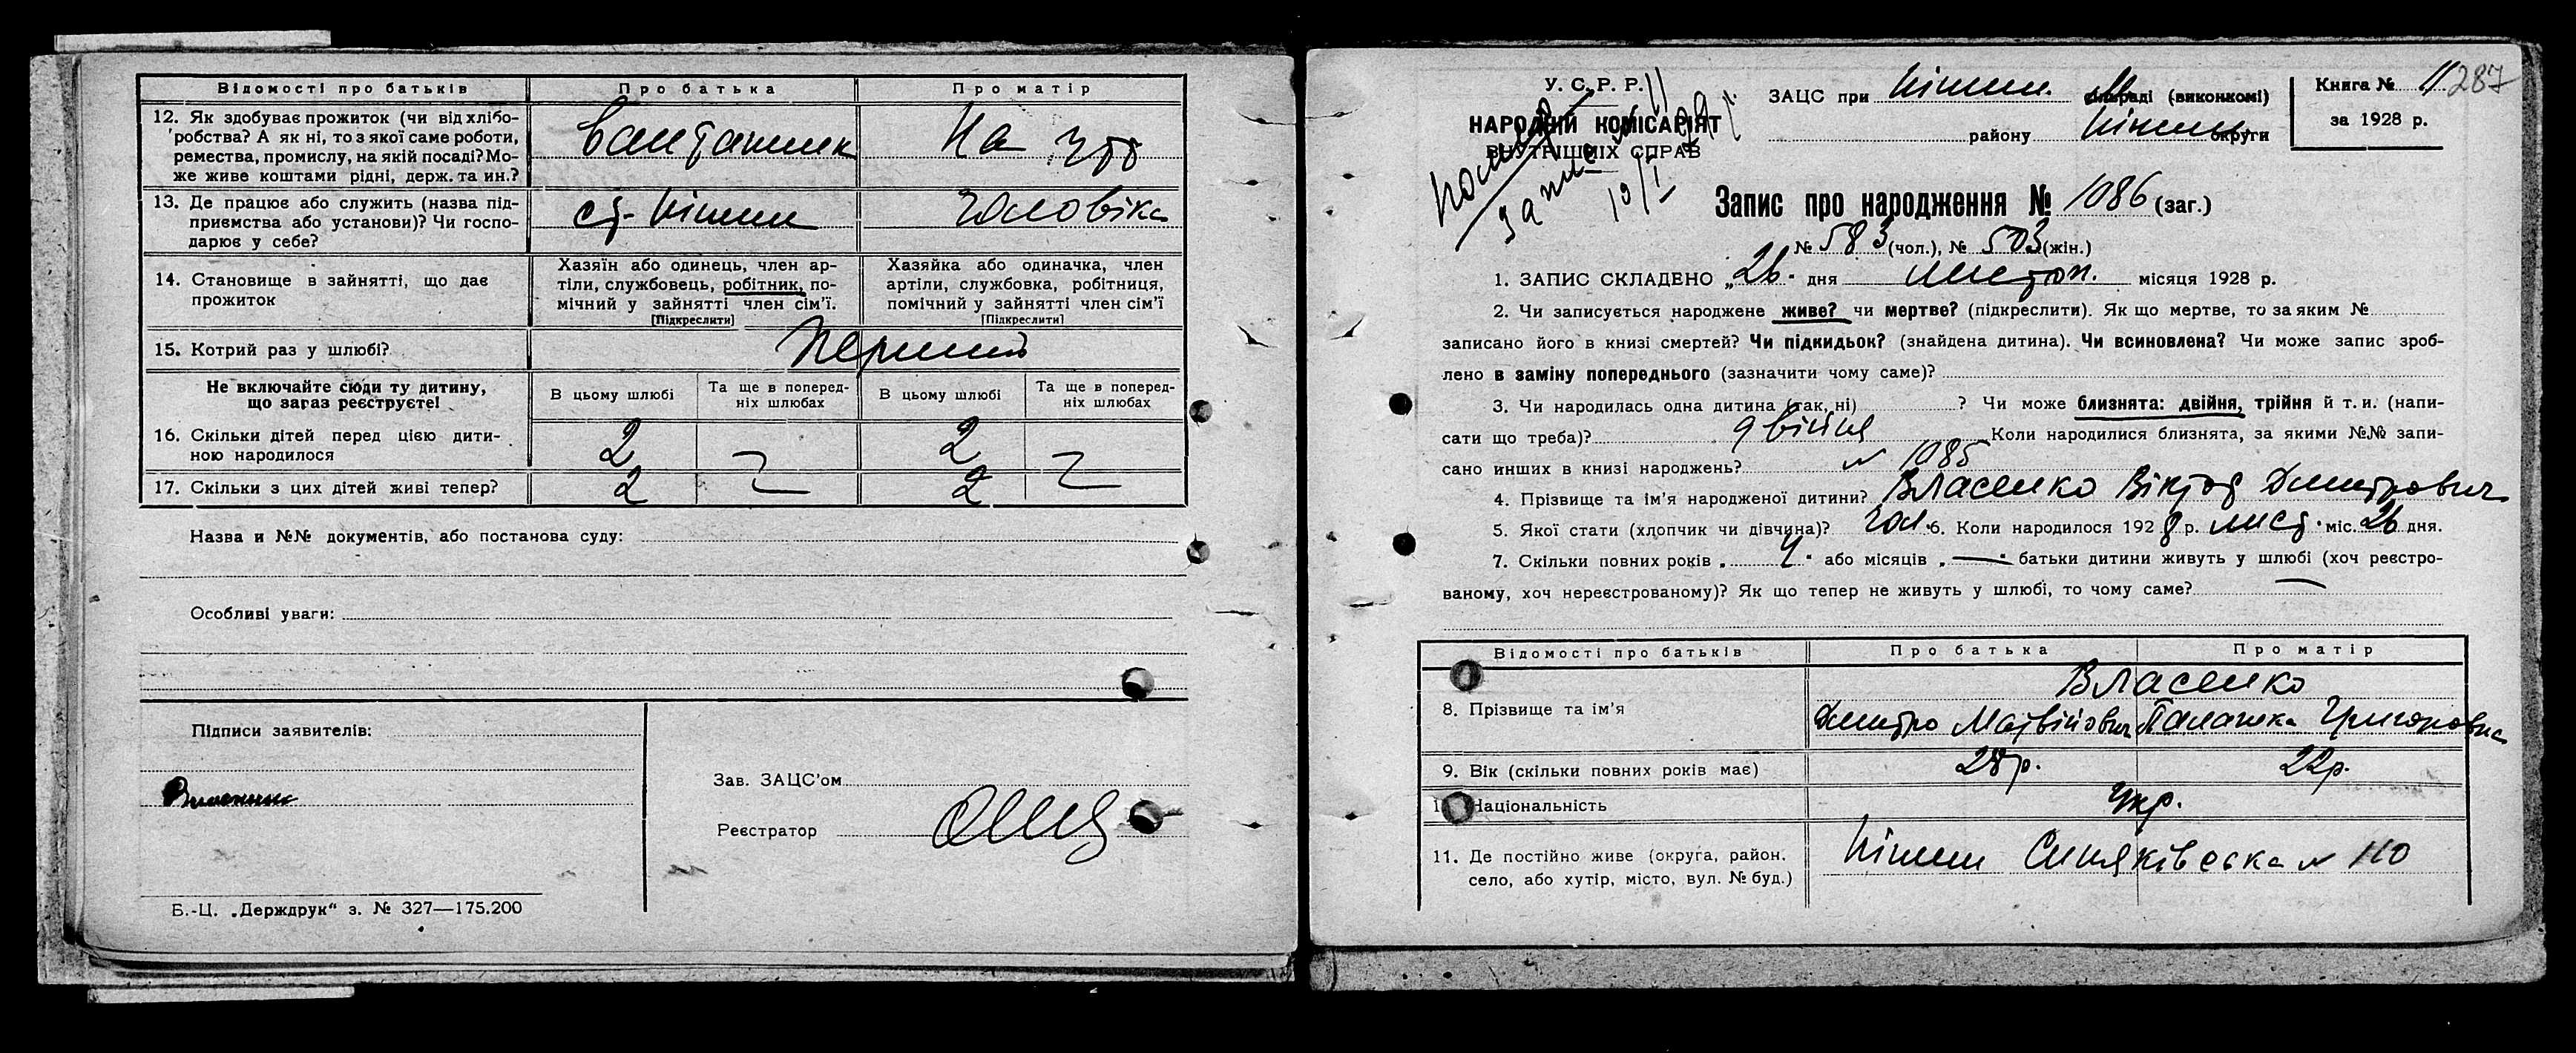 Відомості про батьків Про батька Про матір
12. Як здобуває прожиток (чи від хлібо-
робства? А як ні, то з якої саме роботи,
ремества, промислу, на якій посаді? Мо-
же живе коштами рідні, держ. та ин.?
Вантажник На утр
13. Де працює або служить (назва під-
приємства або установи)? Чи госпо-
дарює у себе?
ст. Ніжин чоловіка
14. Становище в зайнятті, що дає
прожиток
Хазяїн або одинець, член ар-
тілі, службовець, робітник, по-
мічний у зайнятті член сім'ї.
[Підкреслити]
Хазяйка або одиначка, член
артіли, службовка, робітниця,
помічний у зайнятті член сім'ї
[Підкреслити]
15. Котрий раз у шлюбі? Перший
Не включайте сюди ту дитину,
що зараз реєструєте!
В цьому шлюбі Та ще в поперед-
ніх шлюбах В цьому шлюбі Та ще в поперед-
ніх шлюбах
16. Скільки дітей перед цією дити-
ною народилося 2 2
17. Скільки з цих дітей живі тепер? 2 2
Назва и №№ документів, або постанова суду:
Особливі уваги:
Підписи заявителів:
Зав. ЗАЦС'ом
Реєстратор
Б.-Ц. „Держдрук“ з. № 327—175.200
У. С. Р. Р.
НАРОДНІЙ КОМІСАРІЯТ
ВНУТРІШНІХ СПРАВ
ЗАЦС при Ніжин. міськраді (виконкомі)
району Ніжин округи
Книга № 11 287
за 1928 р.
Запис про народження № 1086 (заг.)
№ 583 (чол.), № 503 (жін.)
1. ЗАПИС СКЛАДЕНО „26“ дня листоп. місяця 1928 р.
2. Чи записується народжене живе? чи мертве? (підкреслити). Як що мертве, то за яким №
записано його в книзі смертей? Чи підкидьок? (знайдена дитина). Чи всиновлена? Чи може запис зроб-
лено в заміну попереднього (зазначити чому саме)?
3. Чи народилась одна дитина (так, ні) ? Чи може близнята: двійня, трійня й т. и. (напи-
сати що треба)? двійня Коли народилися близнята, за якими №№ запи-
сано инших в книзі народжень? № 1085
4. Прізвище та ім'я народженої дитини? Власенко Віктор Дмитрович
5. Якої стати (хлопчик чи дівчина)? чол. 6. Коли народилося 1928 р. лист. міс. 26 дня.
7. Скільки повних років „ 4 “ або місяців „ — “ батьки дитини живуть у шлюбі (хоч реєстро-
ваному, хоч нереєстрованому)? Як що тепер не живуть у шлюбі, то чому саме? —
Відомості про батьків Про батька Про матір
Власенко
8. Прізвище та ім'я Дмитро Матвійович Палажка Григоровна
9. Вік (скільки повних років має) 28 р. 22 р.
Національність Укр.
11. Де постійно живе (округа, район.
село, або хутір, місто, вул. № буд.)
Ніжин Синяківська № 110